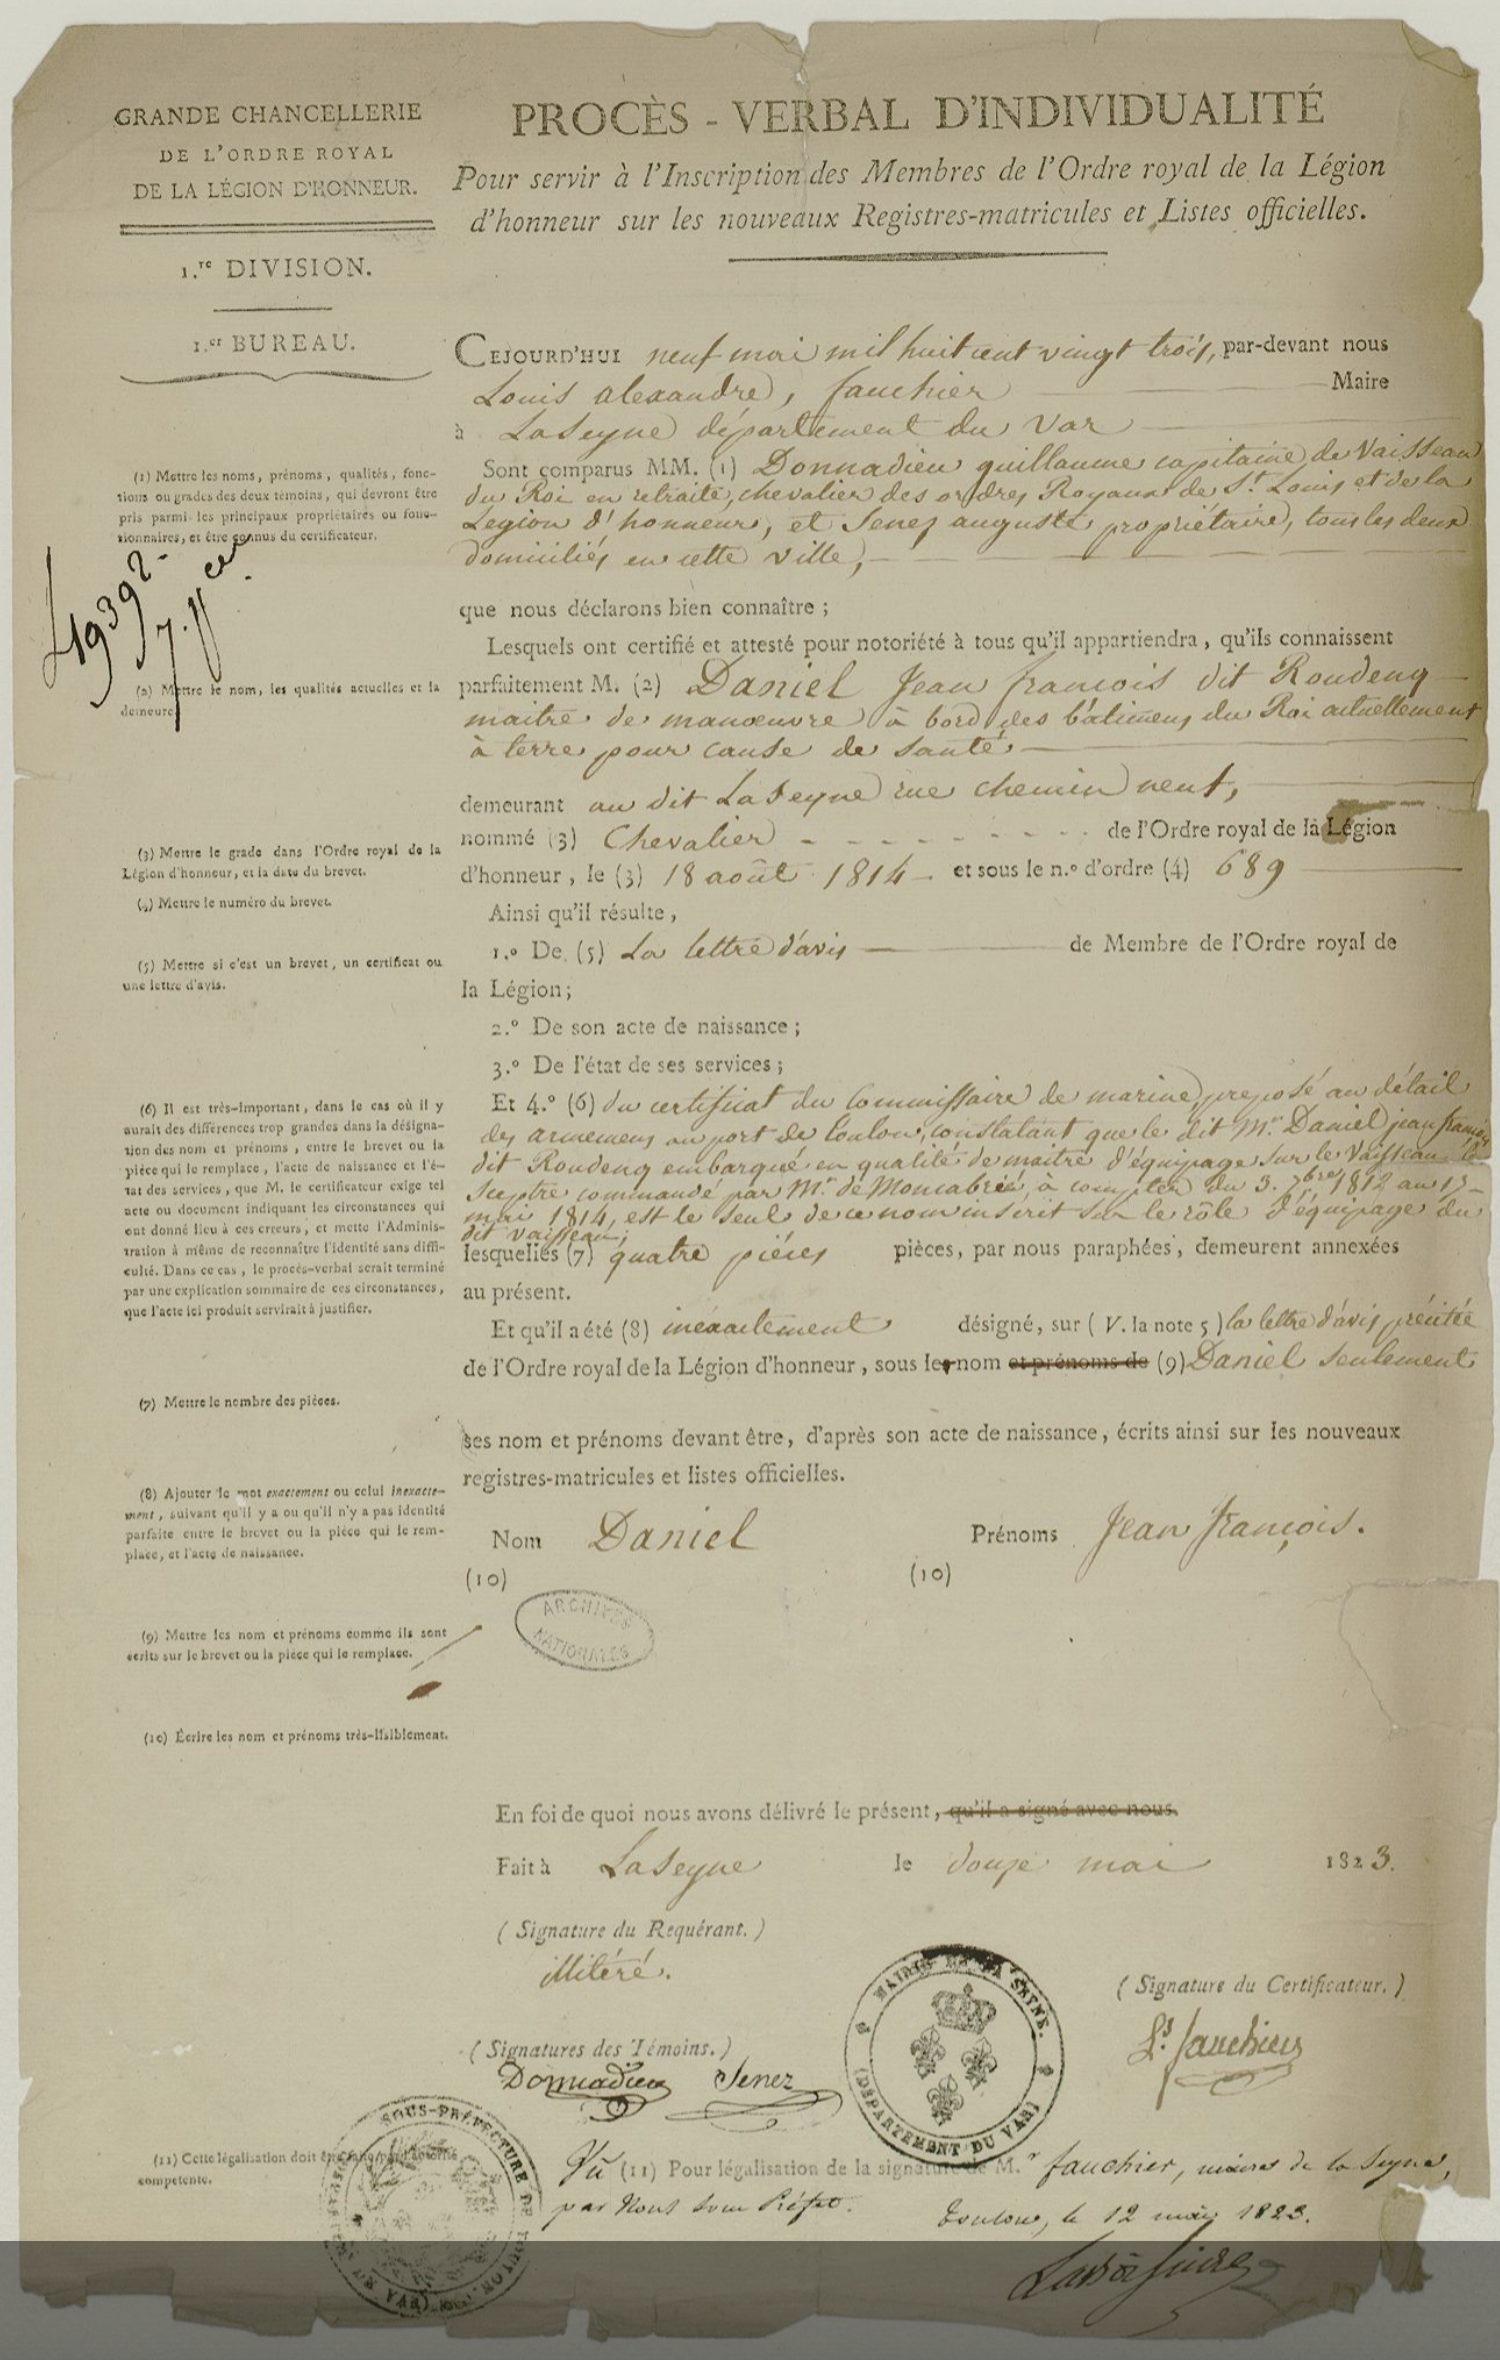 GRANDE CHANCELLERIE
DE L'ORDRE ROYAL
DE LA LÉGION D'HONNEUR.
1.re DIVISION.
1.er BUREAU.
PROCÈS - VERBAL D'INDIVIDUALITÉ
Pour servir à l'Inscription des Membres de l'Ordre royal de la Légion
d'honneur sur les nouveaux Registres-matricules et Listes officielles.
CEJOURD'HUI neuf mai mil huit cent vingt trois, par-devant nous
Louis alexandre, fauchier Maire
à LaSeyne département du Var
(1) Mettre les noms, prénoms, qualités, fonc-
tions ou grades des deux témoins, qui devront être
pris parmi les principaux propriétaires ou fonc-
tionnaires, et être connus du certificateur.
Sont comparus MM. (1) Donnadieu guillaume capitaine de Vaisseau
du Roi en retraite, chevalier des ordres Royaux de St. Louis et de la
Legion d'honneur, et Senez auguste propriétaire, tous les deux
domiciliés en cette ville,
que nous déclarons bien connaître ;
Lesquels ont certifié et attesté pour notoriété à tous qu'il appartiendra, qu'ils connaissent
(2) Mettre le nom, les qualités actuelles et la
demeure.
parfaitement M. (2) Daniel Jean françois dit Roudenq
maitre de manœuvre à bord des bâtimens du Roi actuellement
à terre pour cause de santé
demeurant au dit LaSeyne rue chemin neuf,
(3) Mettre le grade dans l'Ordre royal de la
Légion d'honneur, et la date du brevet.
nommé (3) Chevalier de l'Ordre royal de la Légion
d'honneur, le (3) 18 août 1814 et sous le n.º d'ordre (4) 689
(4) Mettre le numéro du brevet.
Ainsi qu'il résulte,
(5) Mettre si c'est un brevet, un certificat ou
une lettre d'avis.
1.º De (5) La lettre d'avis de Membre de l'Ordre royal de
la Légion;
2.º De son acte de naissance;
3.º De l'état de ses services;
(6) Il est très-important, dans le cas où il y
aurait des différences trop grandes dans la désigna-
tion des nom et prénoms, entre le brevet ou la
pièce qui le remplace, l'acte de naissance et l'é-
tat des services, que M. le certificateur exige tel
acte ou document indiquant les circonstances qui
ont donné lieu à ces erreurs, et mette l'Adminis-
tration à même de reconnaître l'identité sans diffi-
culté. Dans ce cas, le procès-verbal serait terminé
par une explication sommaire de ces circonstances,
que l'acte ici produit servirait à justifier.
Et 4.º (6) du certificat du Commissaire de marine, preposé au détail
des armemens au port de Toulon, constatant que le dit Mr. Daniel jean francois
dit Roudenq embarqué en qualité de maitre d'équipage sur le Vaisseau le
Sceptre commandé par Mr. de Moncabrié, à compter du 3. 7bre 1812 au 17
mai 1814, est le seul de ce nom inscrit sur le rôle d'équipage du
dit vaisseau;
lesquelles (7) quatre pièces pièces, par nous paraphées, demeurent annexées
au présent.
Et qu'il a été (8) inexactement désigné, sur (V. la note 5) la lettre d'avis précitée
de l'Ordre royal de la Légion d'honneur, sous le nom et prénoms de (9) Daniel seulement
(7) Mettre le nombre des pièces.
ses nom et prénoms devant être, d'après son acte de naissance, écrits ainsi sur les nouveaux
registres-matricules et listes officielles.
(8) Ajouter le mot exactement ou celui inexacte-
ment, suivant qu'il y a ou qu'il n'y a pas identité
parfaite entre le brevet ou la pièce qui le rem-
place, et l'acte de naissance.
Nom Daniel Prénoms Jean françois.
(10) (10)
ARCHIVES
NATIONALES
(9) Mettre les nom et prénoms comme ils sont
écrits sur le brevet ou la pièce qui le remplace.
(10) Écrire les nom et prénoms très-lisiblement.
En foi de quoi nous avons délivré le présent, qu'il a signé avec nous.
Fait à LaSeyne le douze mai 1823.
(Signature du Requérant.)
illitéré.
MAIRIE DE LA SEYNE.
(DÉPARTEMENT DU VAR)
(Signature du Certificateur.)
Ls. fauchier
(Signatures des Témoins.)
Donnadieu Senez
SOUS-PRÉFECTURE DE TOULON
(11) Cette légalisation doit être faite par l'autorité
compétente.
Vu (11) Pour légalisation de la signature de M.r fauchier, maire de la Seyne,
par Nous Sous Préfet.
Toulon, le 12 mai 1823.